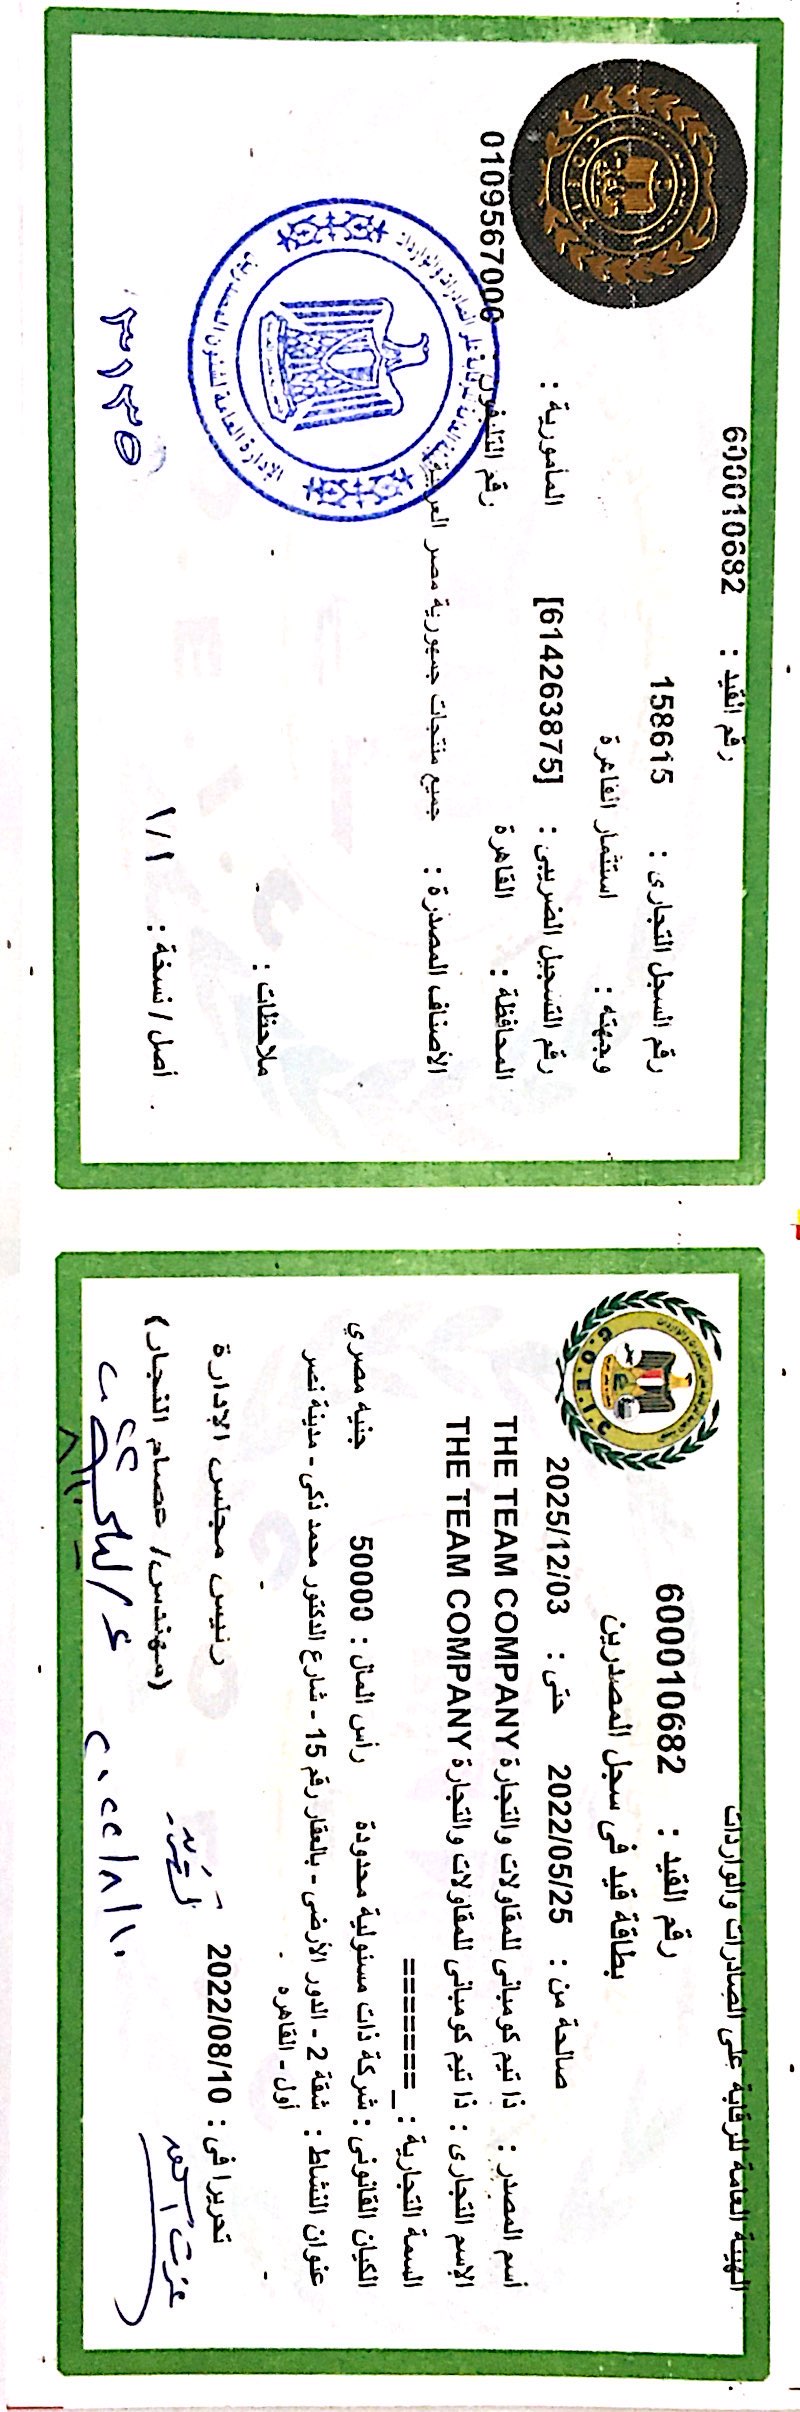 الهيئة العامة للرقابة على الصادرات والواردات
رقم القيد : 600010682
بطاقة قيد فى سجل المصدرين
صالحة من : 2022/05/25 حتى : 2025/12/03
أسم المصدر : ذا تيم كومبانى للمقاولات والتجارة THE TEAM COMPANY
الإسم التجارى : ذا تيم كومبانى للمقاولات والتجارة THE TEAM COMPANY
السمة التجارية : _=======
الكيان القانونى : شركة ذات مسئولية محدودة رأس المال : 50000 جنيه مصري
عنوان النشاط : شقة 2 - الدور الأرضى - بالعقار رقم 15 - شارع الدكتور محمد ذكى - مدينة نصر
أول - القاهره
تحريرا فى : 2022/08/10 رئيس مجلس الإدارة
(مهندس/ عصام النجار)
٢٠٢٢/٨/١٠
G.O.E.I.C
رقم القيد : 600010682
رقم السجل التجارى : 158615
وجهته : استثمار القاهرة
رقم التسجيل الضريبى : [614263875] المأمورية :
المحافظة : القاهرة رقم التليفون : 0109567000
الأصناف المصدرة : جميع منتجات جمهورية مصر العربية
ملاحظات :
أصل / نسخة : ١/١
٣١٣٥